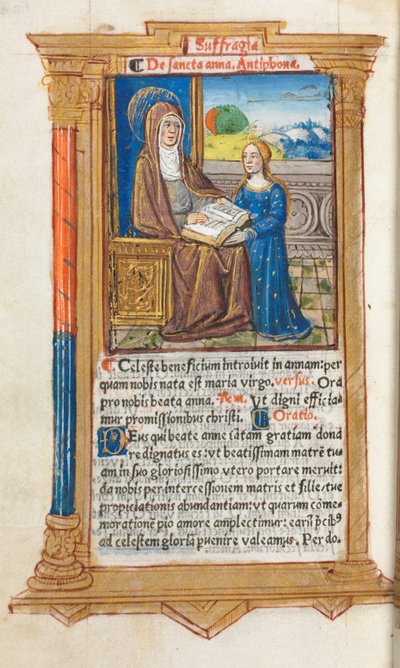 Suffragia
¶ De sancta anna. Antiphona.
¶ Celeste beneficium introiuit in annam: per
quam nobis nata est maria virgo. versus. Ora
pro nobis beata anna. Ut digni efficia-
mur promissionibus christi. ¶ Oratio.
Deus qui beate anne tātam gratiam dona
re dignatus es: vt beatissimam matrē tu-
am in suo gloriosissimo vtero portare meruit:
da nobis per intercessionem matris et filie: tue
propiciationis abundantiam: vt quarum cōme-
morationē pio amore amplectimur: earū p̄cibꝰ
ad celestem gloriā puenire valeamus. Per do.